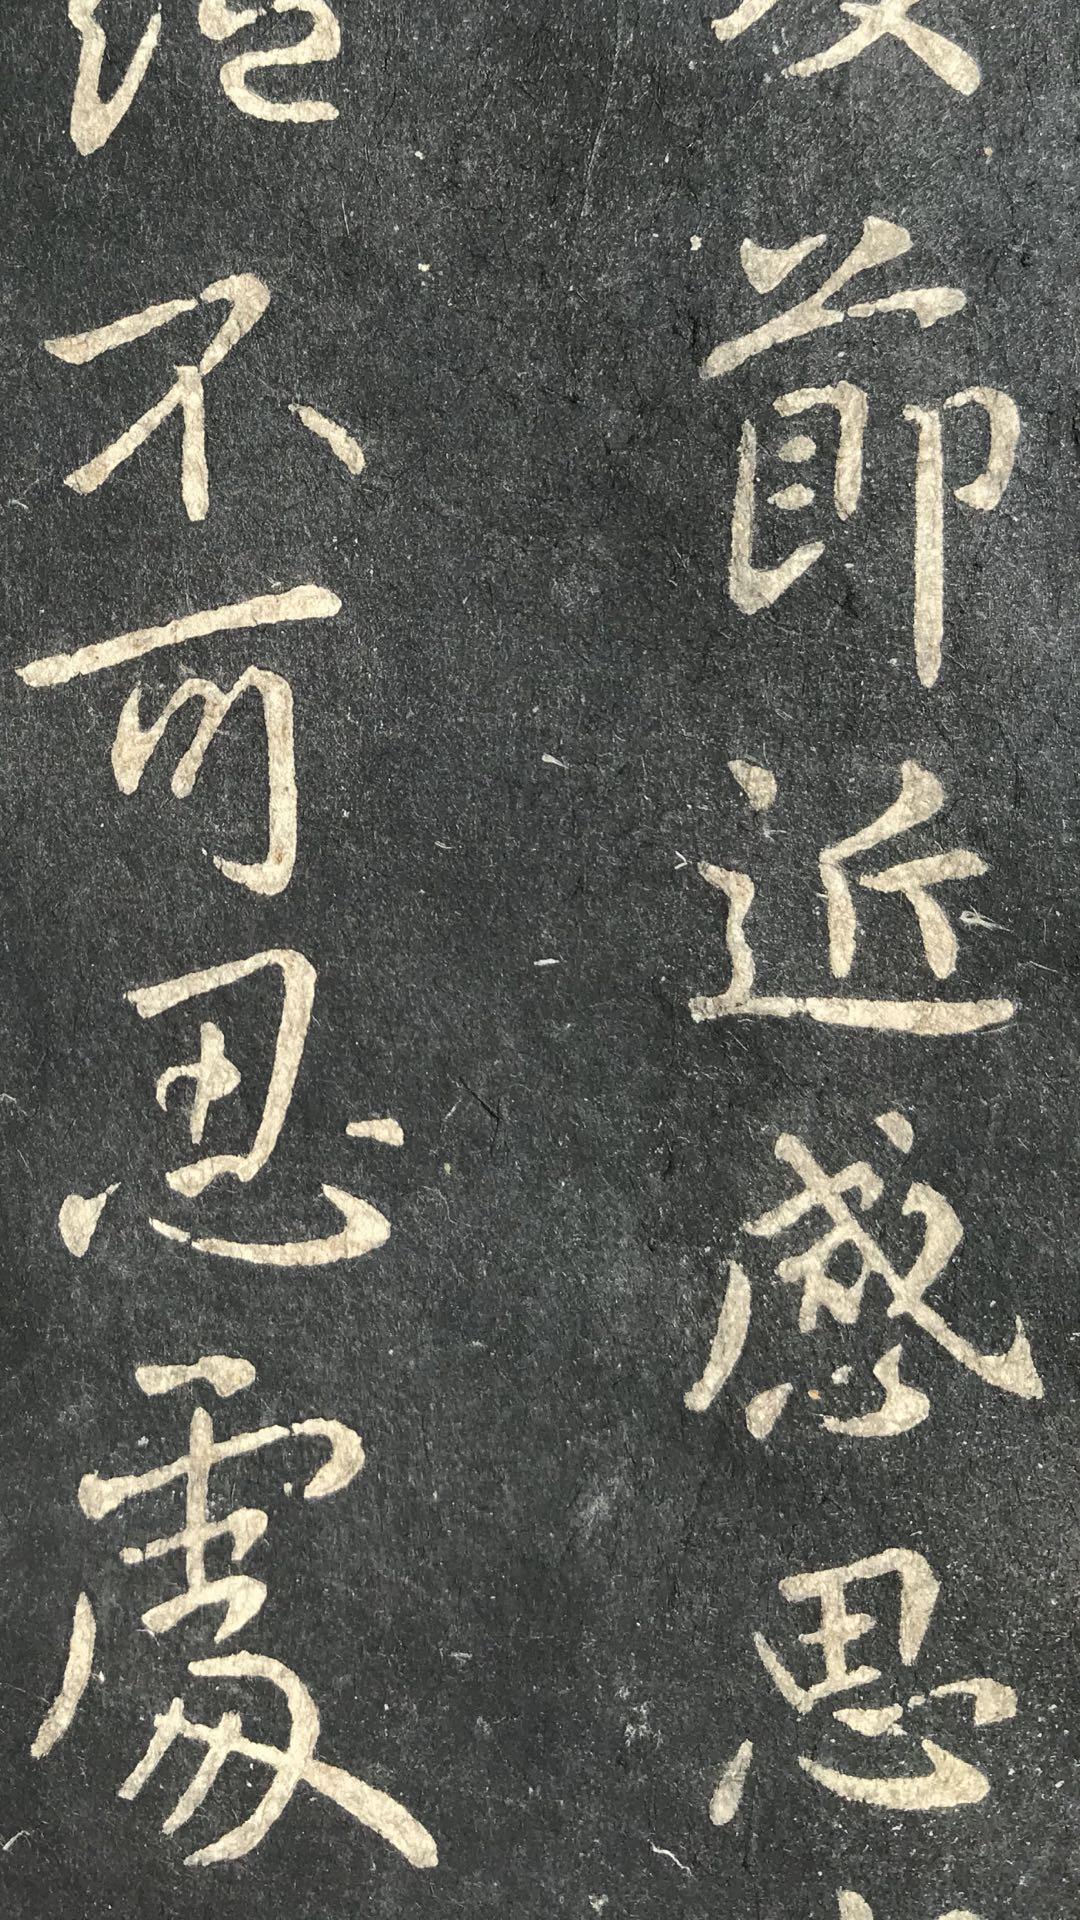 節近感思
不可忍處